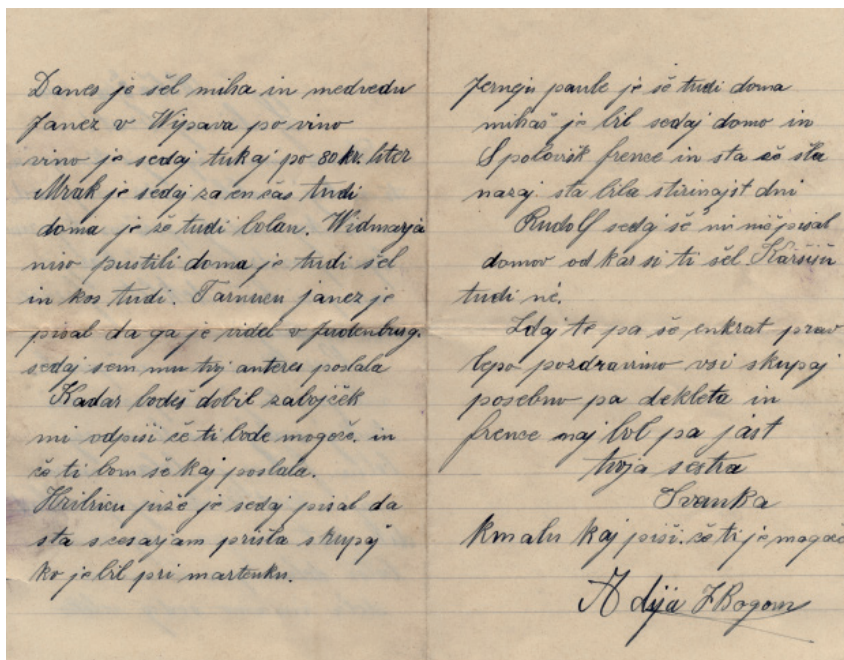 Danes je šel miha in medvedu
Janez v Wipava po vino
vino je sedaj tukaj po 80 kr. liter
Mrak je sedaj za en čas tudi
doma je že tudi bolan. Widmarja
niso pustili doma je tudi šel
in kos tudi. Tarnucu janez je
pisal da ga je videl v Judenburg.
sedaj sem mu tvj anteres poslala
Kadar bodeš dobil zabojček
mi odpiši če ti bode mogoče. in
če ti bom še kaj poslala.
piše je sedaj pisal da
sta s cesarjam prišla skupaj
ko je bil pri martenku.
Jerneju paule je še tudi doma
mihaš je bil sedaj domo in
frence in sta že šla
nazaj. sta bila štirinajst dni
Rudolf sedaj še ni nič pisal
domov od kar si ti šel.
tudi né.
Zdaj te pa še enkrat prav
lepo pozdravimo vsi skupaj
posebno pa dekleta in
frence naj bol pa jast
tvoja sestra
Ivanka
kmalu kaj piši. če ti je mogoče
Adija Z Bogom